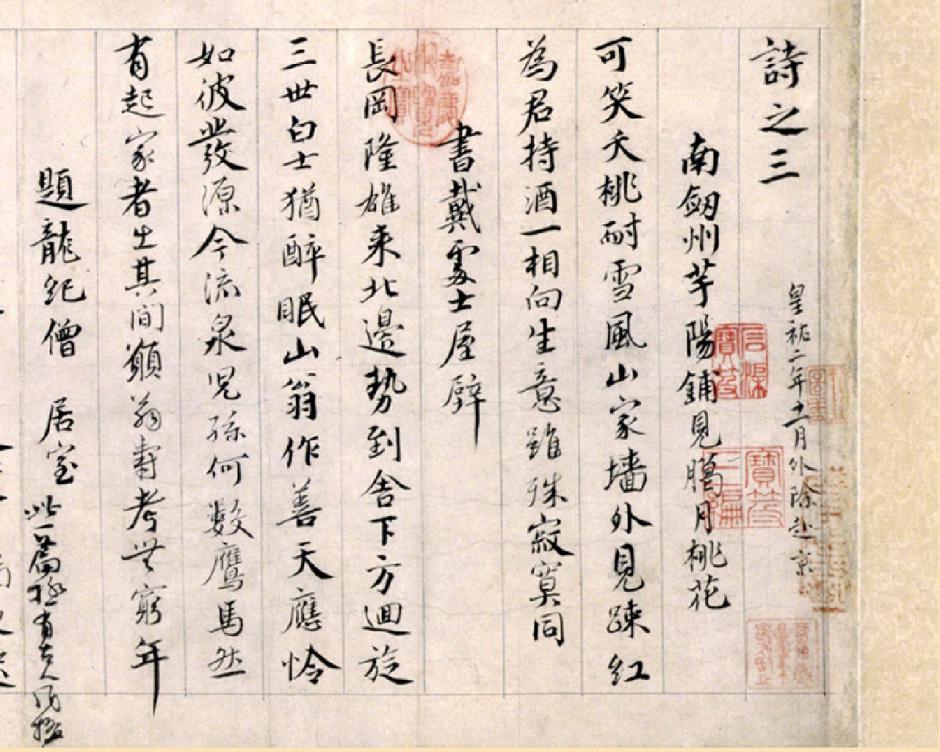 詩之三
皇祐二年十一月外除赴京
南劒州芋陽鋪見臘月桃花
可笑夭桃耐雪風山家墻外見疎紅
為君持酒一相向生意雖殊寂寞同
書戴處士屋壁
長岡隆雄來北邊勢到舍下方迴旋
三世白士猶醉眠山翁作善天應憐
如彼發源今流泉兒孫何數鷹馬然
有起家者出其間願翁壽考無窮年
題龍紀僧居室 此一篇極有古人風格
嘉慶御覽之寶